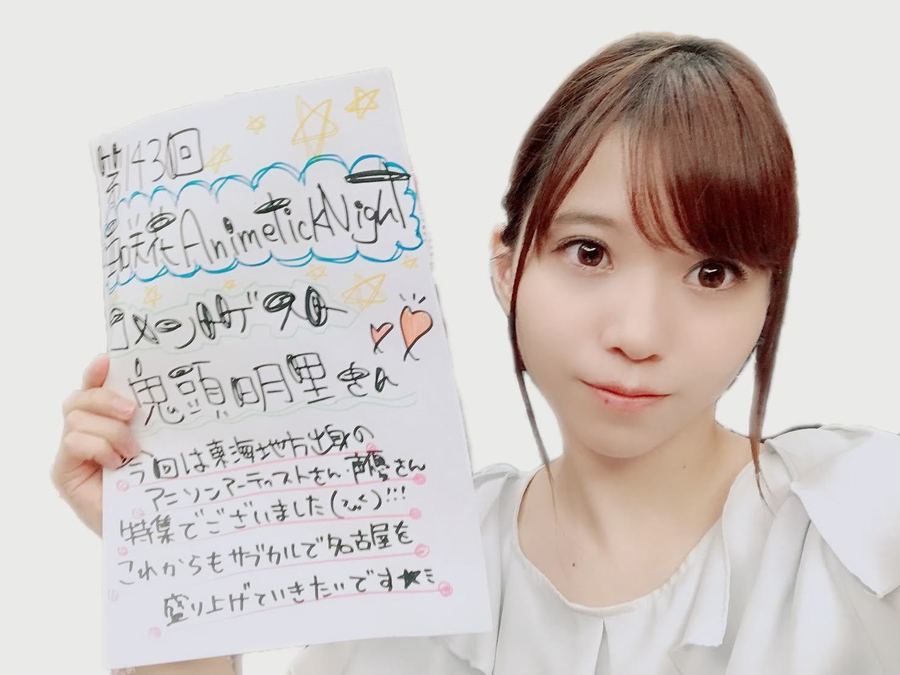 第143回
咲花AnimetickNight
コメントゲスト
鬼頭明里さん
今回は東海地方出身の
アニソンアーティストさん・声優さん
特集でございました(>ω<)!!!
これからもサブカルで名古屋を
盛り上げていきたいです★ミ